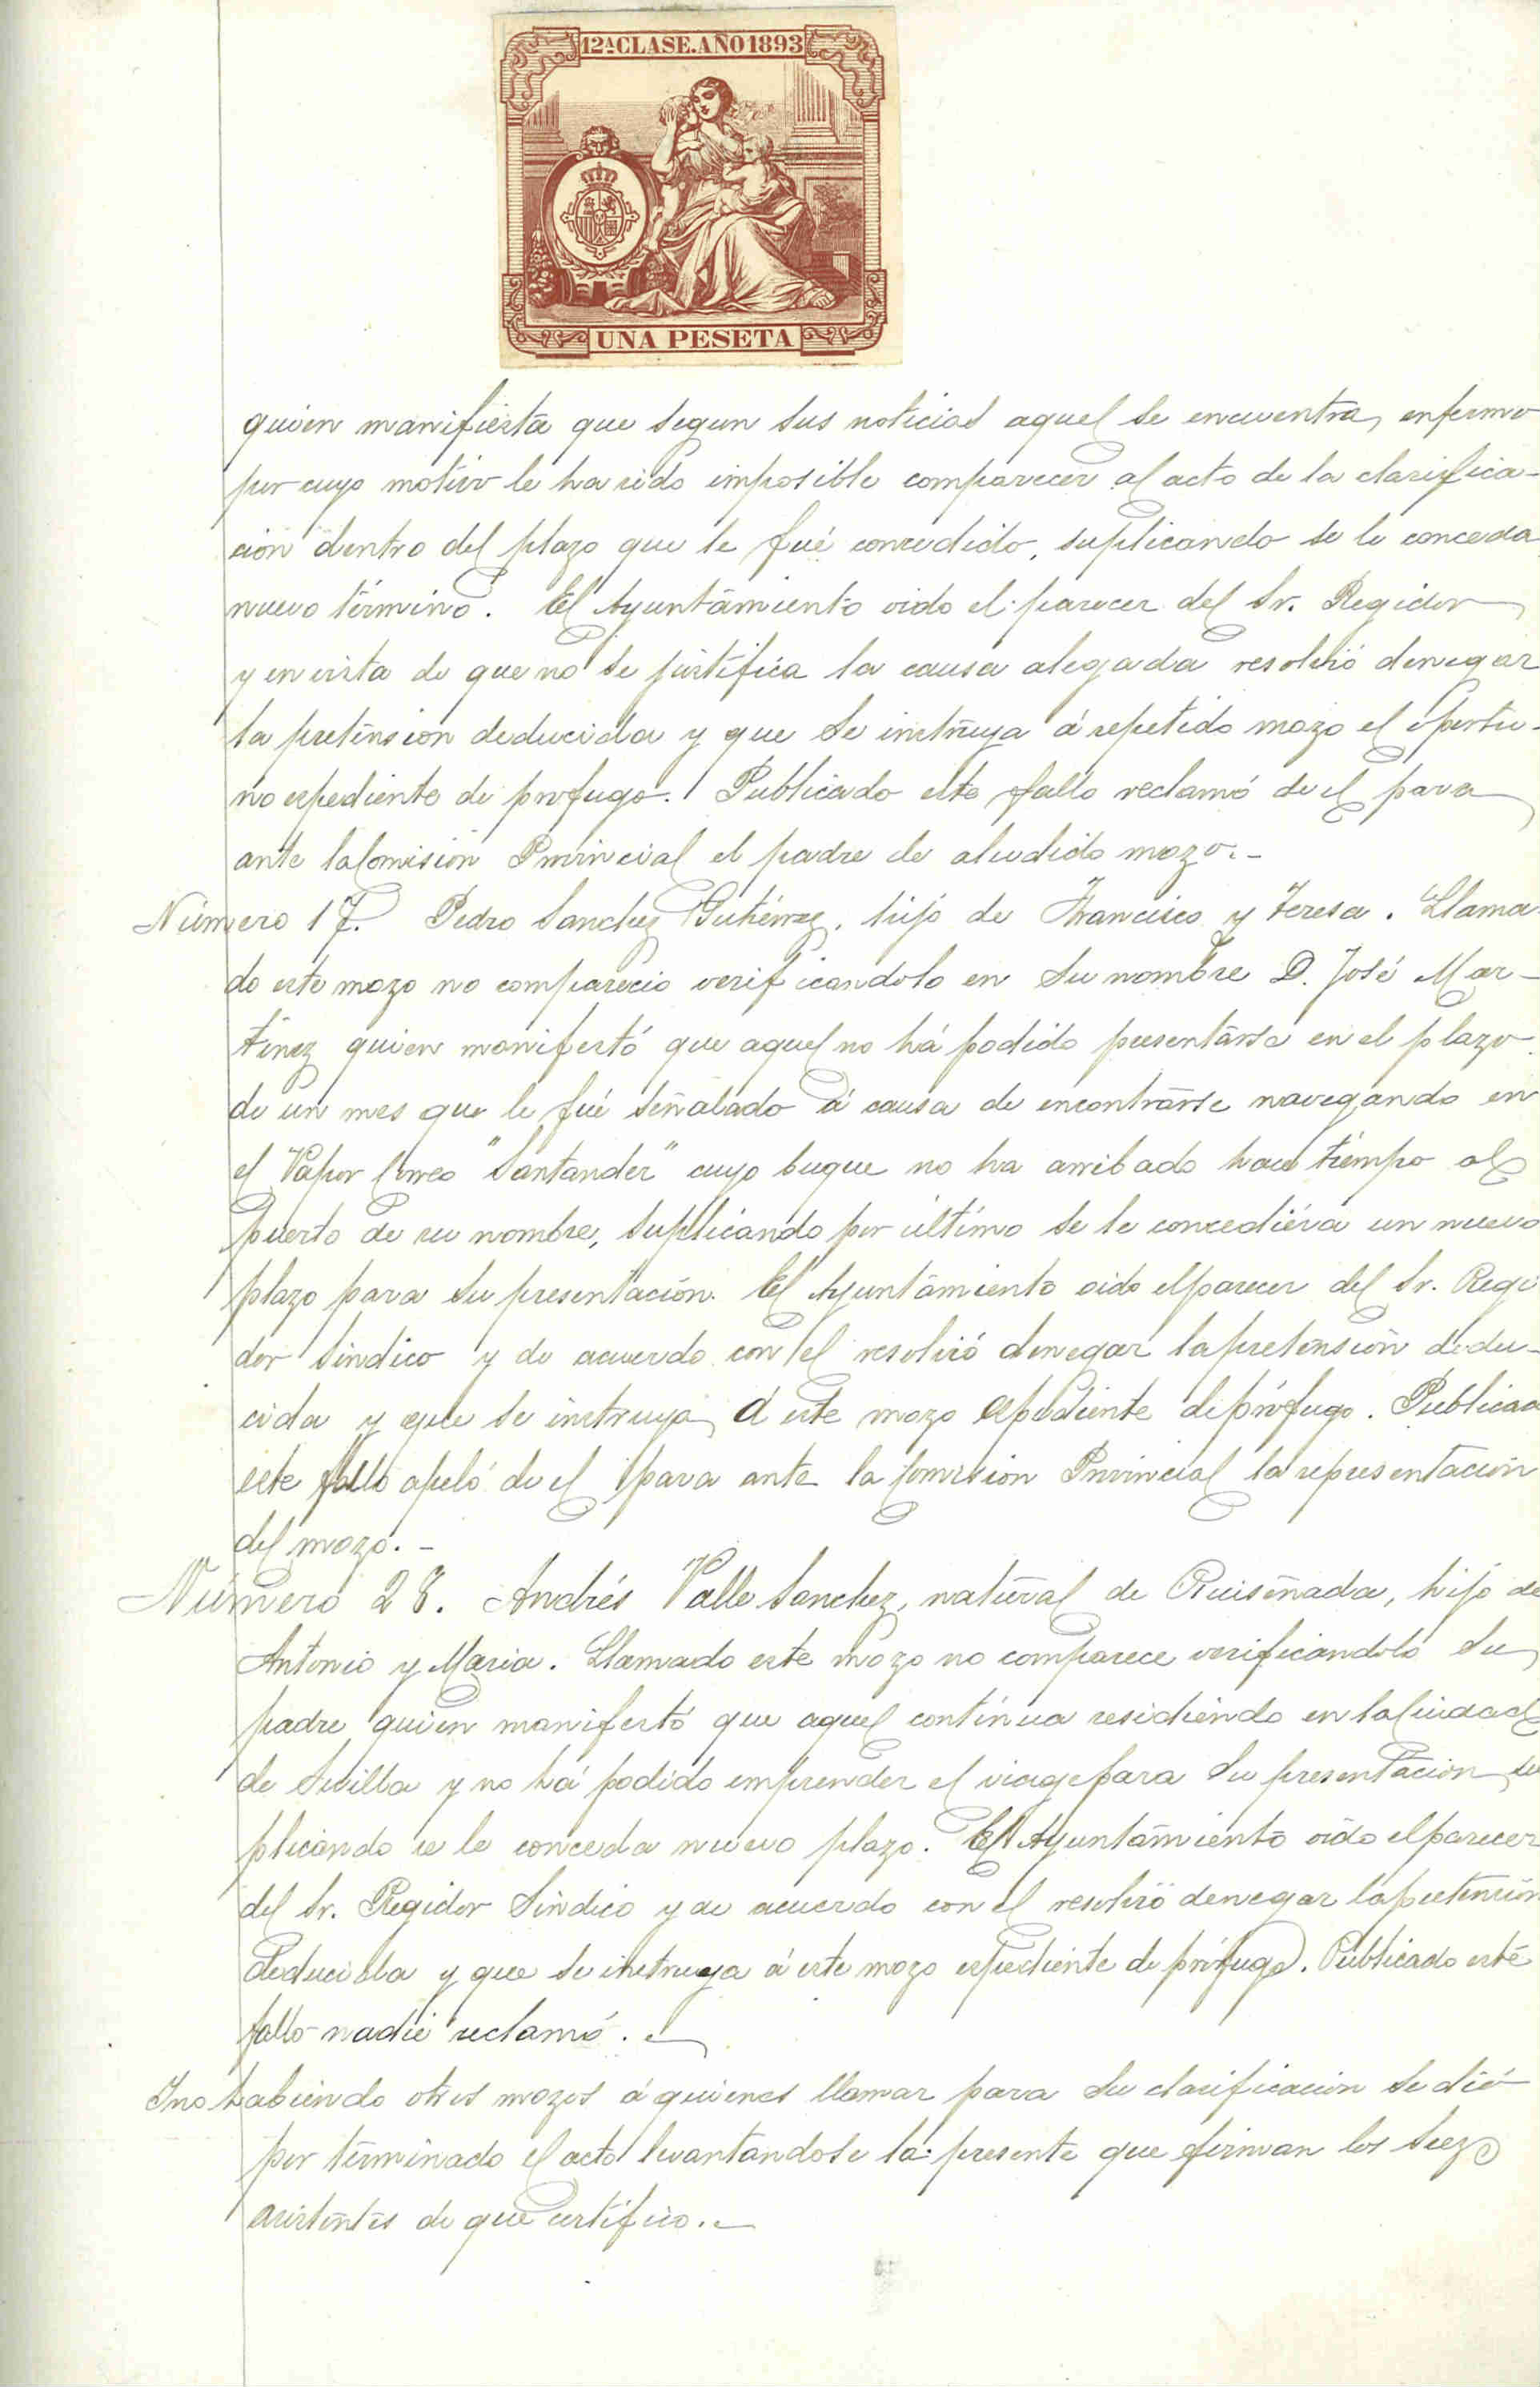 12ª CLASE. AÑO 1893
UNA PESETA
quien manifiesta que segun sus noticias aquel se encuentra enfermo
por cuyo motivo le ha sido imposible comparecer al acto de la clasifica-
ción dentro del plazo que le fué concedido, suplicando se le conceda
nuevo término. El Ayuntamiento oido el parecer del Sr. Regidor
y en vista de que no se justifica la causa alegada resolvió denegar
la pretension deducida y que se instruya á repetido mozo el oportu-
no espediente de profugo. Publicado este fallo reclamó de el para
ante la Comision Provincial el padre de aludido mozo.-
Número 17. Pedro Sanchez Gutiérrez, hijo de Francisco y Teresa. Llama
do este mozo no compareció verificandolo en su nombre D. José Mar-
tinez quien manifestó que aquel no há podido presentarse en el plazo
de un mes que le fué señalado á causa de encontrarse navegando en
el Vapor Correo "Santander" cuyo buque no ha arribado hace tiempo al
puerto de su nombre, suplicando por último se le concediera un nuevo
plazo para su presentación. El Ayuntamiento oido el parecer del Sr. Regi
dor Sindico y de acuerdo con el resolvió denegar la pretensión dedu-
cida y que se instruya á este mozo espediente de prófugo. Publicado
este fallo apeló de el para ante la Comision Provincial la representacion
del mozo.-
Número 28. Andrés Valle Sanchez, natural de Ruiseñada, hijo de
Antonio y Maria. Llamado este mozo no comparece verificandolo su
padre quien manifestó que aquel continua residiendo en la Ciudad
de Sevilla y no há podido emprender el viage para su presentacion su
plicando se le conceda nuevo plazo. El Ayuntamiento oido el parecer
del Sr. Regidor Sindico y de acuerdo con el resolvió denegar la pretensión
deducida y que se instruya á este mozo espediente de prófugo. Publicado este
fallo nadie reclamó.-
Y no habiendo otros mozos á quienes llamar para su clasificacion se dió
por terminado el acto levantandose la presente que firman los Sres
asistentes de que certifico.-